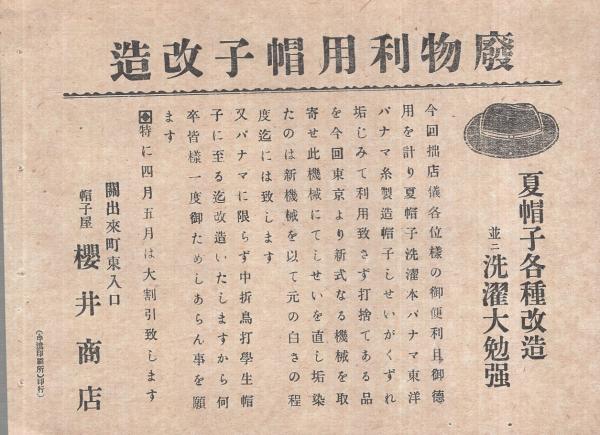 廢物利用帽子改造
夏帽子各種改造
並ニ洗濯大勉强
今回拙店儀各位樣の御便利且御德
用を計り夏帽子洗濯本パナマ東洋
パナマ糸製造帽子しせいがくずれ
垢じみて利用致さず打捨てある品
を今回東京より新式なる機械を取
寄せ此機械にてしせいを直し垢染
たのは新機械を以て元の白さの程
度迄には致します
又パナマに限らず中折鳥打學生帽
子に至る迄改造いたしますから何
卒皆樣一度御ためしあらん事を願
ます
特に四月五月は大割引致します
關出來町東入口
帽子屋 櫻井商店
印刷所印行